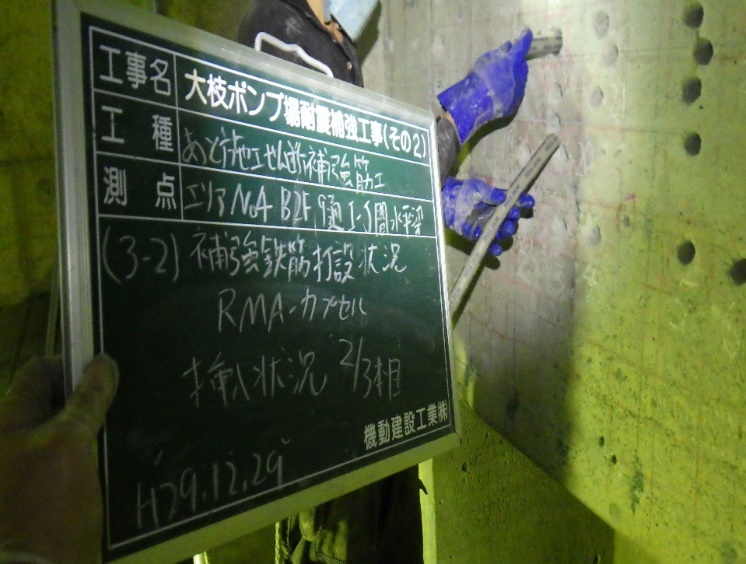 工事名 大枝ポンプ場耐震補強工事(その2)
工種 あと施工せん断補強筋工
測点 エリアNo4 B2F, 9通 I-J間水平梁
(3-2) 補強鉄筋打設状況
RMA-カプセル
挿入状況 2/3本目
機動建設工業㈱
H29.12.29